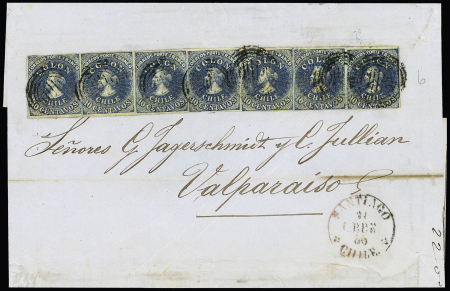 COLON COLON COLON COLON COLON COLON COLON
CHILE CHILE CHILE CHILE CHILE CHILE CHILE
10 CENTAVOS 10 CENTAVOS 10 CENTAVOS 10 CENTAVOS 10 CENTAVOS 10 CENTAVOS 10 CENTAVOS
6
Señores G. Jagerschmidt y C. Jullian
Valparaiso
SANTIAGO
CHILE